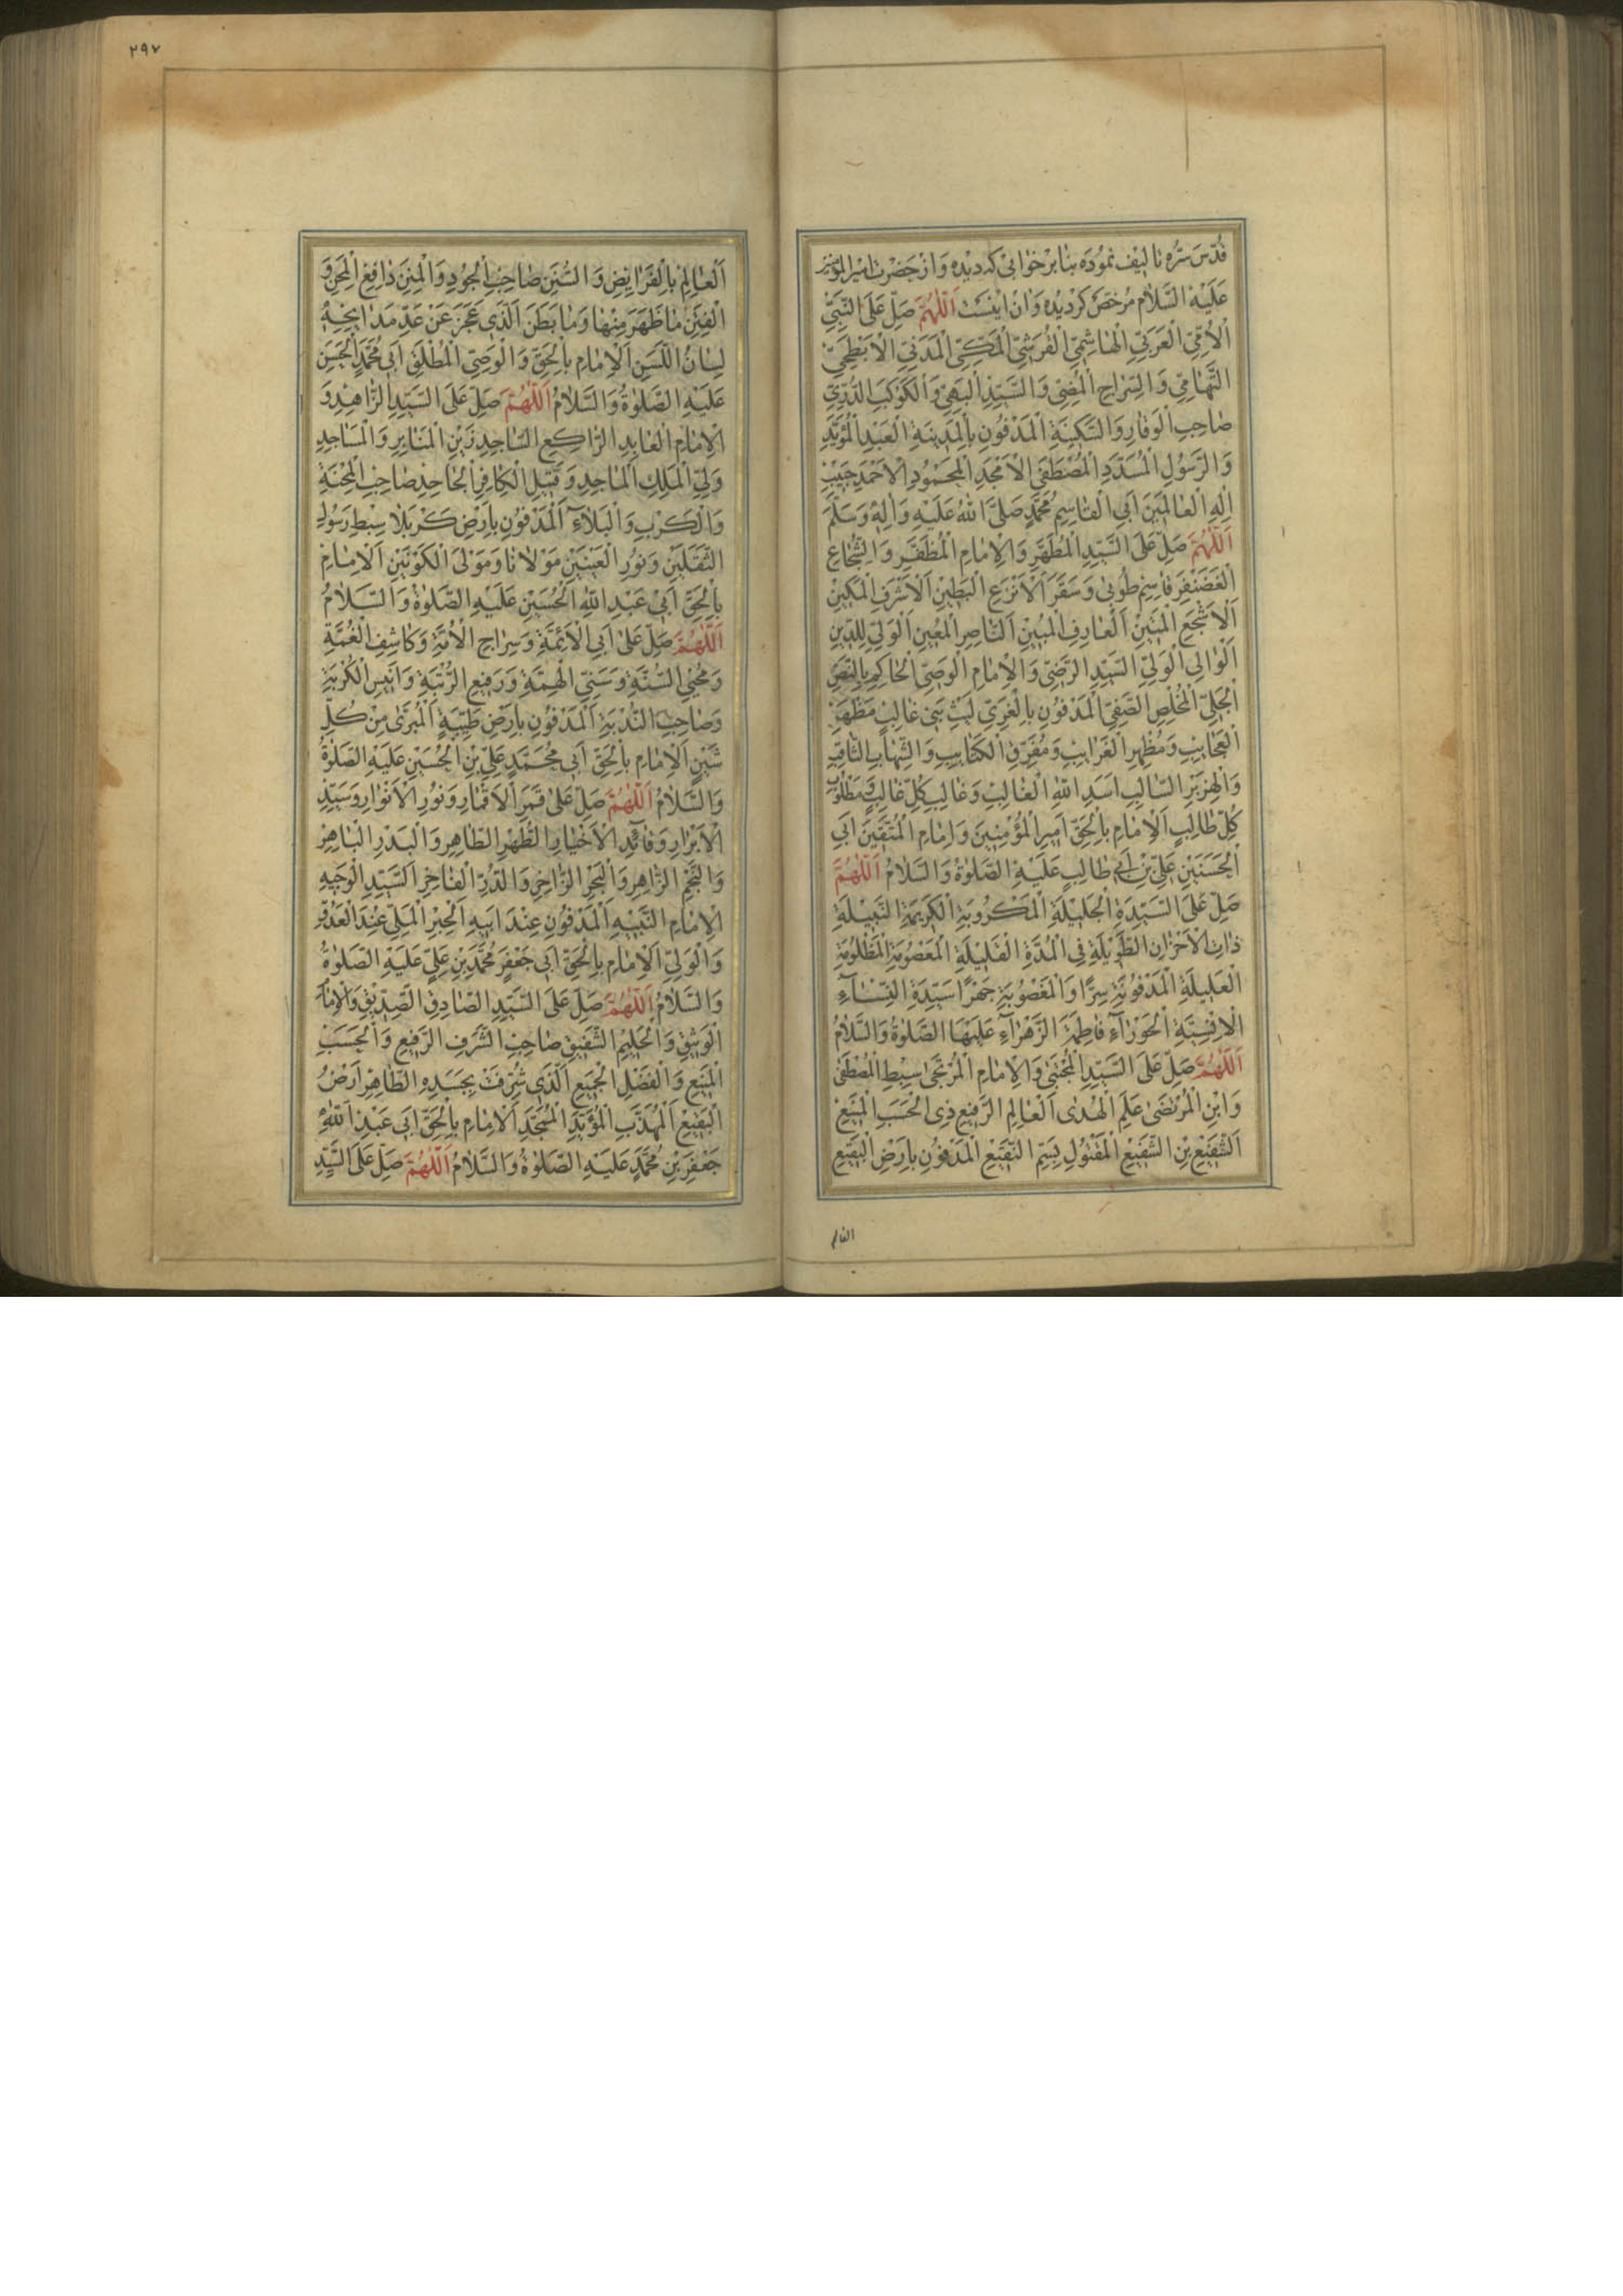 قُدِّسَ سِرُّه تاليف نموده بنابر خوابى كه ديده و از حضرت اميرالمؤمنين
عَلَيْهِ السَّلَامُ مرخّص گرديده و ان اينست اَللّٰهُمَّ صَلِّ عَلَى النَّبِيِّ
الْاُمِّيِّ الْعَرَبِيِّ الْهَاشِمِيِّ الْقُرَشِيِّ الْمَكِّيِّ الْمَدَنِيِّ الْاَبْطَحِيِّ
التِّهَامِيِّ وَالسِّرَاجِ الْمُضِيّ وَالسَّيِّدِ الْبَهِيّ وَالْكَوْكَبِ الدُّرِّيِّ
صَاحِبِ الْوَقَارِ وَالسَّكِينَةِ الْمَدْفُونِ بِالْمَدِينَةِ الْعَبْدِ الْمُؤَيَّدِ
وَالرَّسُولِ الْمُسَدَّدِ الْمُصْطَفَى الْاَمْجَدِ الْمَحْمُودِ الْاَحْمَدِ حَبِيبِ
اِلٰهِ الْعَالَمِينَ اَبِي الْقَاسِمِ مُحَمَّدٍ صَلَّى اللهُ عَلَيْهِ وَاٰلِهِ وَسَلَّمَ
اَللّٰهُمَّ صَلِّ عَلَى السَّيِّدِ الْمُطَهَّرِ وَالْاِمَامِ الْمُظَفَّرِ وَالشُّجَاعِ
الْغَضَنْفَرِ قَاسِمِ طُوبٰى وَسَقَرَ اَلْاَنْزَعِ الْبَطِينِ اَلْاَشْرَفِ الْمَكِينِ
اَلْاَشْجَعِ الْمَتِينِ اَلْعَارِفِ الْمُبِينِ اَلنَّاصِرِ الْمُعِينِ اَلْوَلِيِّ لِلدِّينِ
اَلْوَالِي الْوَلِيِّ السَّيِّدِ الرَّضِيِّ وَالْاِمَامِ الْوَصِيِّ الْحَاكِمِ بِالنَّصِّ
الْجَلِيِّ الْمُخْلِصِ الصَّفِيِّ الْمَدْفُونِ بِالْغَرِيِّ لَيْثِ بَنِي غَالِبٍ مَظْهَرِ
الْعَجَايِبِ وَمُظْهِرِ الْغَرَايِبِ وَمُفَرِّقِ الْكَتَايِبِ وَالشِّهَابِ الثَّاقِبِ
وَالْهِزَبْرِ السَّالِبِ اَسَدِ اللهِ الْغَالِبِ وَغَالِبِ كُلِّ غَالِبٍ وَمَطْلُوبِ
كُلِّ طَالِبٍ اَلْاِمَامِ بِالْحَقِّ اَمِيرِ الْمُؤْمِنِينَ وَاِمَامِ الْمُتَّقِينَ اَبِي
الْحَسَنَيْنِ عَلِيِّ بْنِ اَبِي طَالِبٍ عَلَيْهِ الصَّلٰوةُ وَالسَّلَامُ اَللّٰهُمَّ
صَلِّ عَلَى السَّيِّدَةِ الْجَلِيلَةِ الْمَكْرُوبَةِ الْكَرِيمَةِ النَّبِيلَةِ
ذَاتِ الْاَحْزَانِ الطَّوِيلَةِ فِي الْمُدَّةِ الْقَلِيلَةِ الْمَعْصُومَةِ الْمَظْلُومَةِ
الْعَلِيلَةِ الْمَدْفُونَةِ سِرًّا وَالْمَغْصُوبَةِ جَهْرًا سَيِّدَةِ النِّسَاءِ
الْاِنْسِيَّةِ الْحَوْرَاءِ فَاطِمَةَ الزَّهْرَاءِ عَلَيْهَا الصَّلٰوةُ وَالسَّلَامُ
اَللّٰهُمَّ صَلِّ عَلَى السَّيِّدِ الْمُجْتَبٰى وَالْاِمَامِ الْمُرْتَجٰى سِبْطِ الْمُصْطَفٰى
وَابْنِ الْمُرْتَضٰى عَلَمِ الْهُدٰى اَلْعَالِمِ الرَّفِيعِ ذِي الْحَسَبِ الْمَنِيعِ
اَلشَّفِيعِ بْنِ الشَّفِيعِ الْمَقْتُولِ بِسَمِّ النَّقِيعِ الْمَدْفُونِ بِاَرْضِ الْبَقِيعِ
العالم
٢٩٧
اَلْعَالِمِ بِالْفَرَايِضِ وَالسُّنَنِ صَاحِبِ الْجُودِ وَالْمِنَنِ دَافِعِ الْمِحَنِ وَ
الْفِتَنِ مَا ظَهَرَ مِنْهَا وَمَا بَطَنَ اَلَّذِي عَجَزَ عَنْ عَدِّ مَدَايِحِهِ
لِسَانُ اللَّسِنِ اَلْاِمَامِ بِالْحَقِّ وَالْوَصِيِّ الْمُطْلَقِ اَبِي مُحَمَّدٍ الْحَسَنِ
عَلَيْهِ الصَّلٰوةُ وَالسَّلَامُ اَللّٰهُمَّ صَلِّ عَلَى السَّيِّدِ الزَّاهِدِ وَ
الْاِمَامِ الْعَابِدِ الرَّاكِعِ السَّاجِدِ زَيْنِ الْمَنَابِرِ وَالْمَسَاجِدِ
وَلِيِّ الْمَلِكِ الْمَاجِدِ وَقَتِيلِ الْكَافِرِ الْجَاحِدِ صَاحِبِ الْمِحْنَةِ
وَالْكَرْبِ وَالْبَلَاءِ اَلْمَدْفُونِ بِاَرْضِ كَرْبَلَا سِبْطِ رَسُولِ
الثَّقَلَيْنِ وَنُورِ الْعَيْنَيْنِ مَوْلَانَا وَمَوْلَى الْكَوْنَيْنِ اَلْاِمَامِ
بِالْحَقِّ اَبِي عَبْدِ اللهِ الْحُسَيْنِ عَلَيْهِ الصَّلٰوةُ وَالسَّلَامُ
اَللّٰهُمَّ صَلِّ عَلٰى اَبِي الْاَئِمَّةِ وَسِرَاجِ الْاُمَّةِ وَكَاشِفِ الْغُمَّةِ
وَمُحْيِي السُّنَّةِ وَسَنِيِّ الْهِمَّةِ وَرَفِيعِ الرُّتْبَةِ وَاَنِيسِ الْكُرْبَةِ
وَصَاحِبِ النُّدْبَةِ اَلْمَدْفُونِ بِاَرْضِ طَيْبَةٍ اَلْمُبَرَّى مِنْ كُلِّ
شَيْنٍ اَلْاِمَامِ بِالْحَقِّ اَبِي مُحَمَّدٍ عَلِيِّ بْنِ الْحُسَيْنِ عَلَيْهِ الصَّلٰوةُ
وَالسَّلَامُ اَللّٰهُمَّ صَلِّ عَلٰى قَمَرِ الْاَقْمَارِ وَنُورِ الْاَنْوَارِ وَسَيِّدِ
الْاَبْرَارِ وَقَائِدِ الْاَخْيَارِ الطُّهْرِ الطَّاهِرِ وَالْبَدْرِ الْبَاهِرِ
وَالنَّجْمِ الزَّاهِرِ وَالْبَحْرِ الزَّاخِرِ وَالدُّرِّ الْفَاخِرِ اَلسَّيِّدِ الْوَجِيهِ
الْاِمَامِ النَّبِيهِ اَلْمَدْفُونِ عِنْدَ اَبِيهِ اَلْحِبْرِ الْمَلِيِّ عِنْدَ الْعَدُوِّ
وَالْوَلِيِّ اَلْاِمَامِ بِالْحَقِّ اَبِي جَعْفَرٍ مُحَمَّدِ بْنِ عَلِيٍّ عَلَيْهِ الصَّلٰوةُ
وَالسَّلَامُ اَللّٰهُمَّ صَلِّ عَلَى السَّيِّدِ الصَّادِقِ الصِّدِّيقِ وَالْاِمَامِ
الْوَثِيقِ وَالْحَلِيمِ الشَّفِيقِ صَاحِبِ الشَّرَفِ الرَّفِيعِ وَالْحَسَبِ
الْمَنِيعِ وَالْفَضْلِ الْجَمِيعِ اَلَّذِي شُرِّفَتْ بِجَسَدِهِ الطَّاهِرِ اَرْضُ
الْبَقِيعِ اَلْمُهَذَّبِ الْمُؤَيَّدِ الْمُمَجَّدِ اَلْاِمَامِ بِالْحَقِّ اَبِي عَبْدِ اللهِ
جَعْفَرِ بْنِ مُحَمَّدٍ عَلَيْهِ الصَّلٰوةُ وَالسَّلَامُ اَللّٰهُمَّ صَلِّ عَلَى السَّيِّدِ